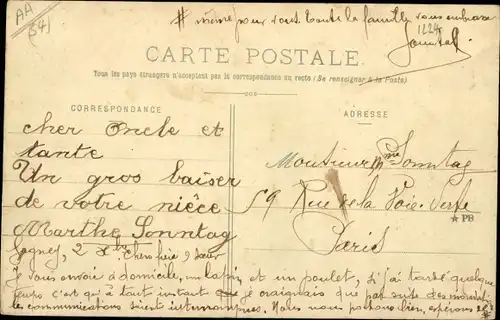 AA
34)
# même pour vous. Toute la famille vous embrasse
1224
Sonntag
CARTE POSTALE
Tous les pays étrangers n'acceptent pas la correspondance au recto (Se renseigner à la Poste)
CORRESPONDANCE
ADRESSE
cher Oncle et
tante
Un gros baiser
de votre nièce
Marthe Sonntag
Monsieur Mme Sonntag
59 Rue de la Voie-Verte
★ PB
Paris
2 Xbre Chers frère & sœur
Je vous envoie à domicile, un lapin et un poulet, si j'ai tardé quelque
temps c'est qu'à tout instant je craignais que par suite des
les communications soient interrompues. Nous nous portons bien, espérons